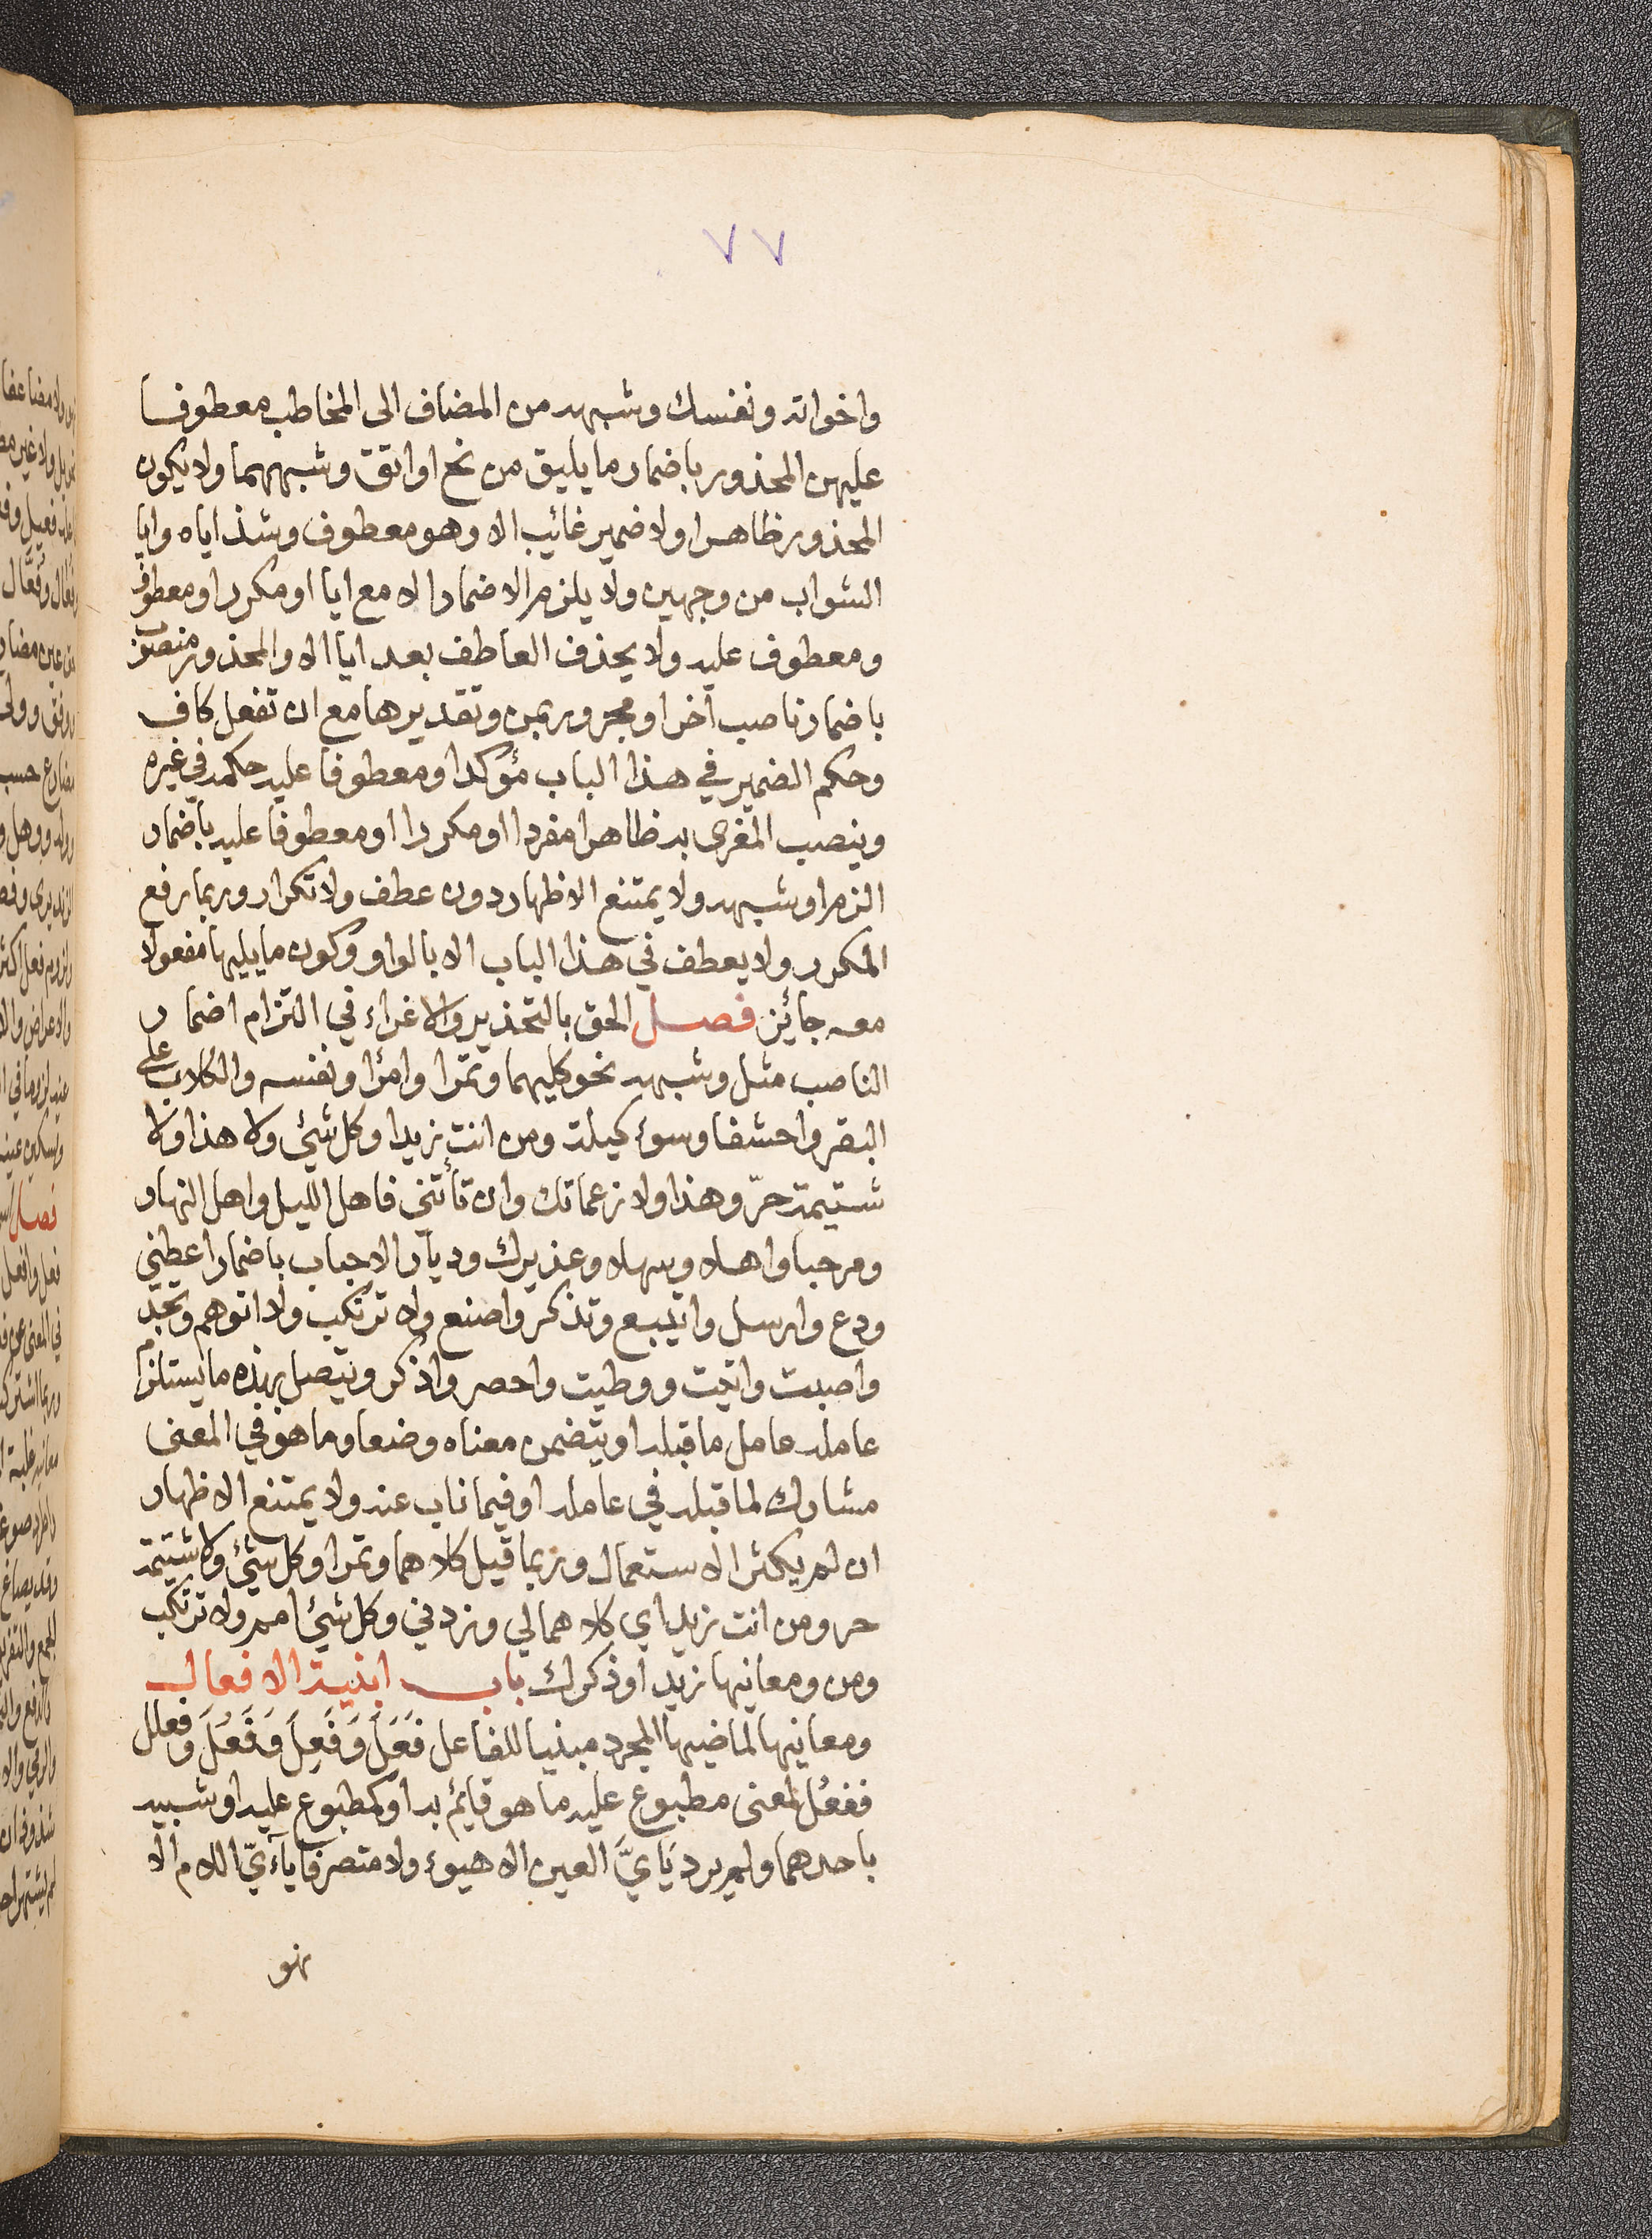 ٧٧
واخواته ونفسك وشبهه من المضاف الى المخاطب معطوفا
عليهن المحذور باضمار ما يليق من نح او اتق وشبههما ولا يكون
المحذور ظاهرا ولا ضمير غائب الا وهو معطوف وشذ اياه وايا
الشواب من وجهين ولا يلزم الاضمار الا مع ايا او مكررا ومعطوف
ومعطوف عليه ولا يحذف العاطف بعد ايا الا والمحذور منصوب
باضمار ناصب آخر او مجرور بمن وتقديرها مع ان تفعل كاف
وحكم الضمير في هذا الباب مؤكدا ومعطوفا عليه حكمه في غيره
وينصب المغرى به ظاهرا مفردا او مكررا او معطوفا عليه باضمار
الزم او شبهه ولا يمتنع الاظهار دون عطف ولا تكرار وربما رفع
المكرر ولا يعطف في هذا الباب الا بالواو وكون ما يليها مفعولا
معه جائز فصل الحق بالتحذير والاغراء في التزام اضمار
الناصب مثل وشبهه نحو كليهما وتمرا وامرٔا ونفسه والكلاب على
البقر واحشفا وسوء كيلة ومن انت زيدا وكل شئ ولا هذا ولا
شتيمة حرّ وهذا ولا زعماتك وان تأتني فاهل الليل واهل النهار
ومرحبا واهلا وسهلا وعذيرك وديار الاحباب باضمار اعطني
ودع وارسل واتبيع وتذكر واصنع ولا ترتكب ولا اتوهم وتجد
واصبت واتيت ووطيت واحصر واذكر ويتصل بهذه ما يستلزم
عامله عامل ما قبله او يتضمن معناه وضعا وما هو في المعنى
مشارك لما قبله في عامله او فيما ناب عنه ولا يمتنع الاظهار
ان لم يكثر الاستعمال وربما قيل كلاهما وتمرا وكل شئ ولا شتيمة
حر ومن انت زيد اي كلاهما لي وزدني وكل شئ امم ولا ترتكب
ومن ومعانيها زيد او ذكرك باب ابنية الافعال
ومعانيها لماضيها المجرد مبنيا للفاعل فَعَلَ وَفَعِلَ وَفَعُلَ وفعلل
ففعُل لمعنى مطبوع عليه ما هو قايم به او كمطبوع عليه او شبيه
باحدهما ولم يرد يَايَّ العين الا هيوء ولا متصرفا يآءيّ اللام الا
نهو